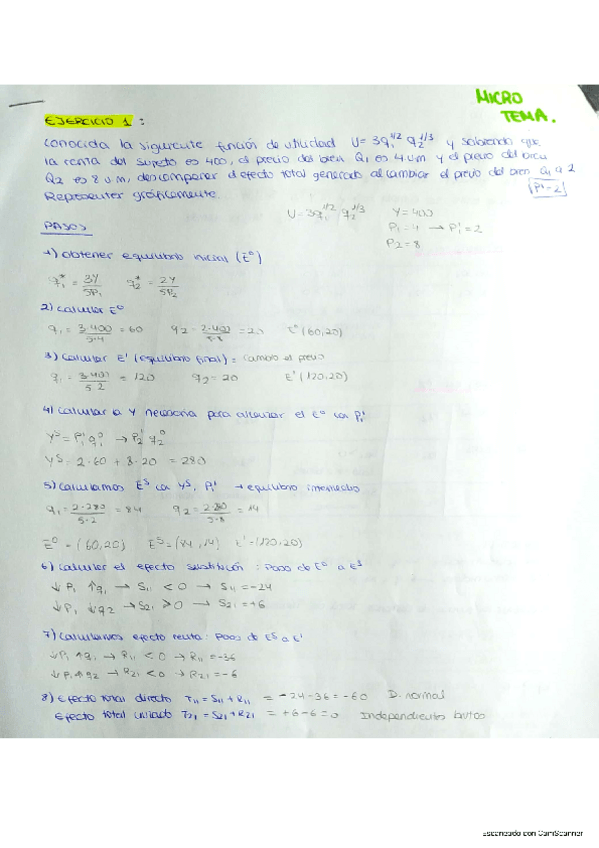 MICRO
TEMA.
EJERCICIO 1 :
Conocida la siguiente función de utilidad U = 3q₁^1/2 q₂^1/3 y sabiendo que
la renta del sujeto es 400, el precio del bien Q₁ es 4 um y el precio del bien
Q₂ es 8 u m, descomponer el efecto total generado al cambiar el precio del bien Q₁ a 2
Representar gráficamente. P¹=2
U = 3q₁^1/2 q₂^1/3 Y=400
PASOS P₁=4 → P₁'=2
P₂=8
1) Obtener equilibrio inicial (E⁰)
q₁* = 3Y/5P₁ q₂* = 2Y/5P₂
2) Calcular E⁰
q₁ = 3·400/5·4 = 60 q₂ = 2·400/5·8 = 20 E⁰ (60,20)
3) Calcular E' (equilibrio final) = cambio el precio
q₁ = 3·400/5·2 = 120 q₂ = 20 E' (120,20)
4) Calcular la Y necesaria para alcanzar el E⁰ con P₁'
Yˢ = P₁' q₁⁰ → P₂' q₂⁰
Yˢ = 2·60 + 8·20 = 280
5) Calculamos Eˢ con Yˢ, P₁' → equilibrio intermedio
q₁ = 2·280/5·2 = 84 q₂ = 2·280/5·8 = 14
E⁰ = (60,20) Eˢ = (84,14) E' = (120,20)
6) Calcular el efecto sustitución : Paso de E⁰ a Eˢ
↓P₁ ↑q₁ → S₁₁ < 0 → S₁₁ = -24
↓P₁ ↓q₂ → S₂₁ > 0 → S₂₁ = +6
7) Calculamos efecto renta : Paso de Eˢ a E'
↓P₁ ↑q₁ → R₁₁ < 0 → R₁₁ = -36
↓P₁ ↑q₂ → R₂₁ < 0 → R₂₁ = -6
8) Efecto total directo T₁₁ = S₁₁ + R₁₁ = -24-36 = -60 D. normal
Efecto total cruzado T₂₁ = S₂₁ + R₂₁ = +6-6 = 0 Independientes brutos
Escaneado con CamScanner